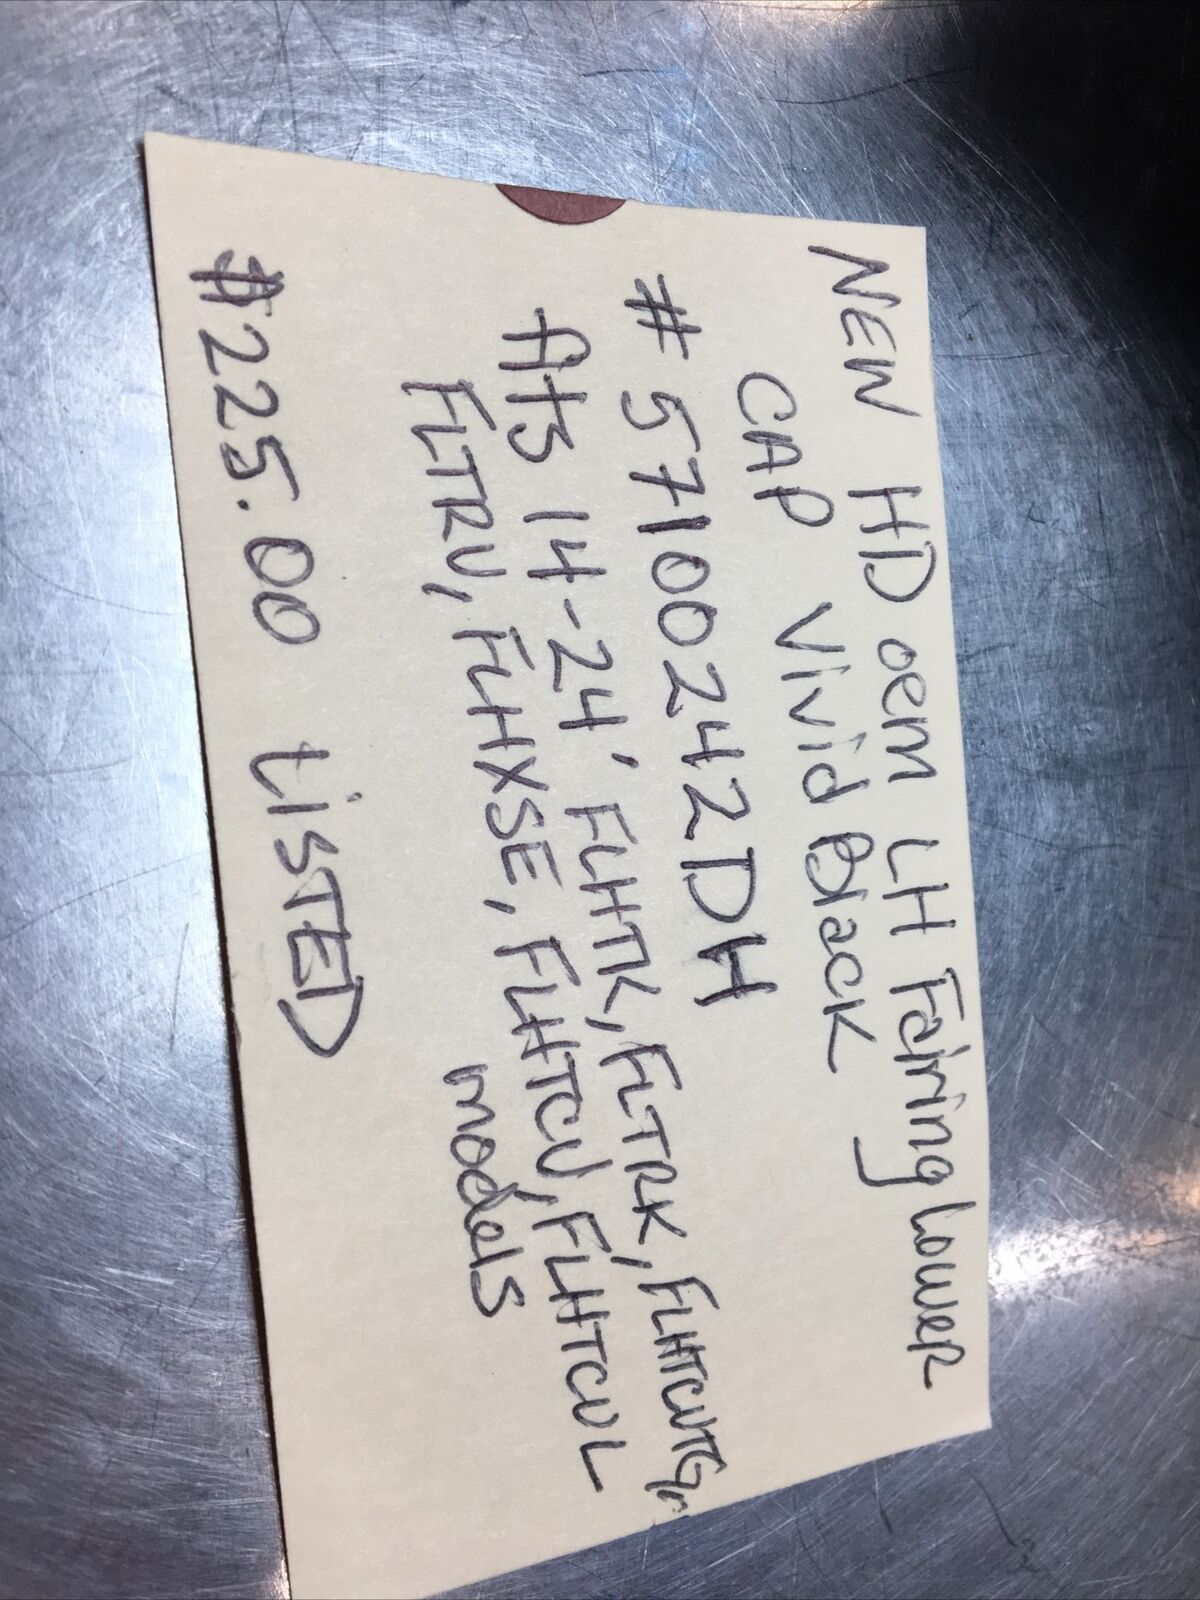 NEW HD oem LH Fairing Lower
CAP Vivid Black
# 57100242DH
fits 14-24', FLHTK, FLTRK, FLHTCUTG,
FLTRU, FLHXSE, FLHTCU, FLHTCUL
models
$225.00 LISTED